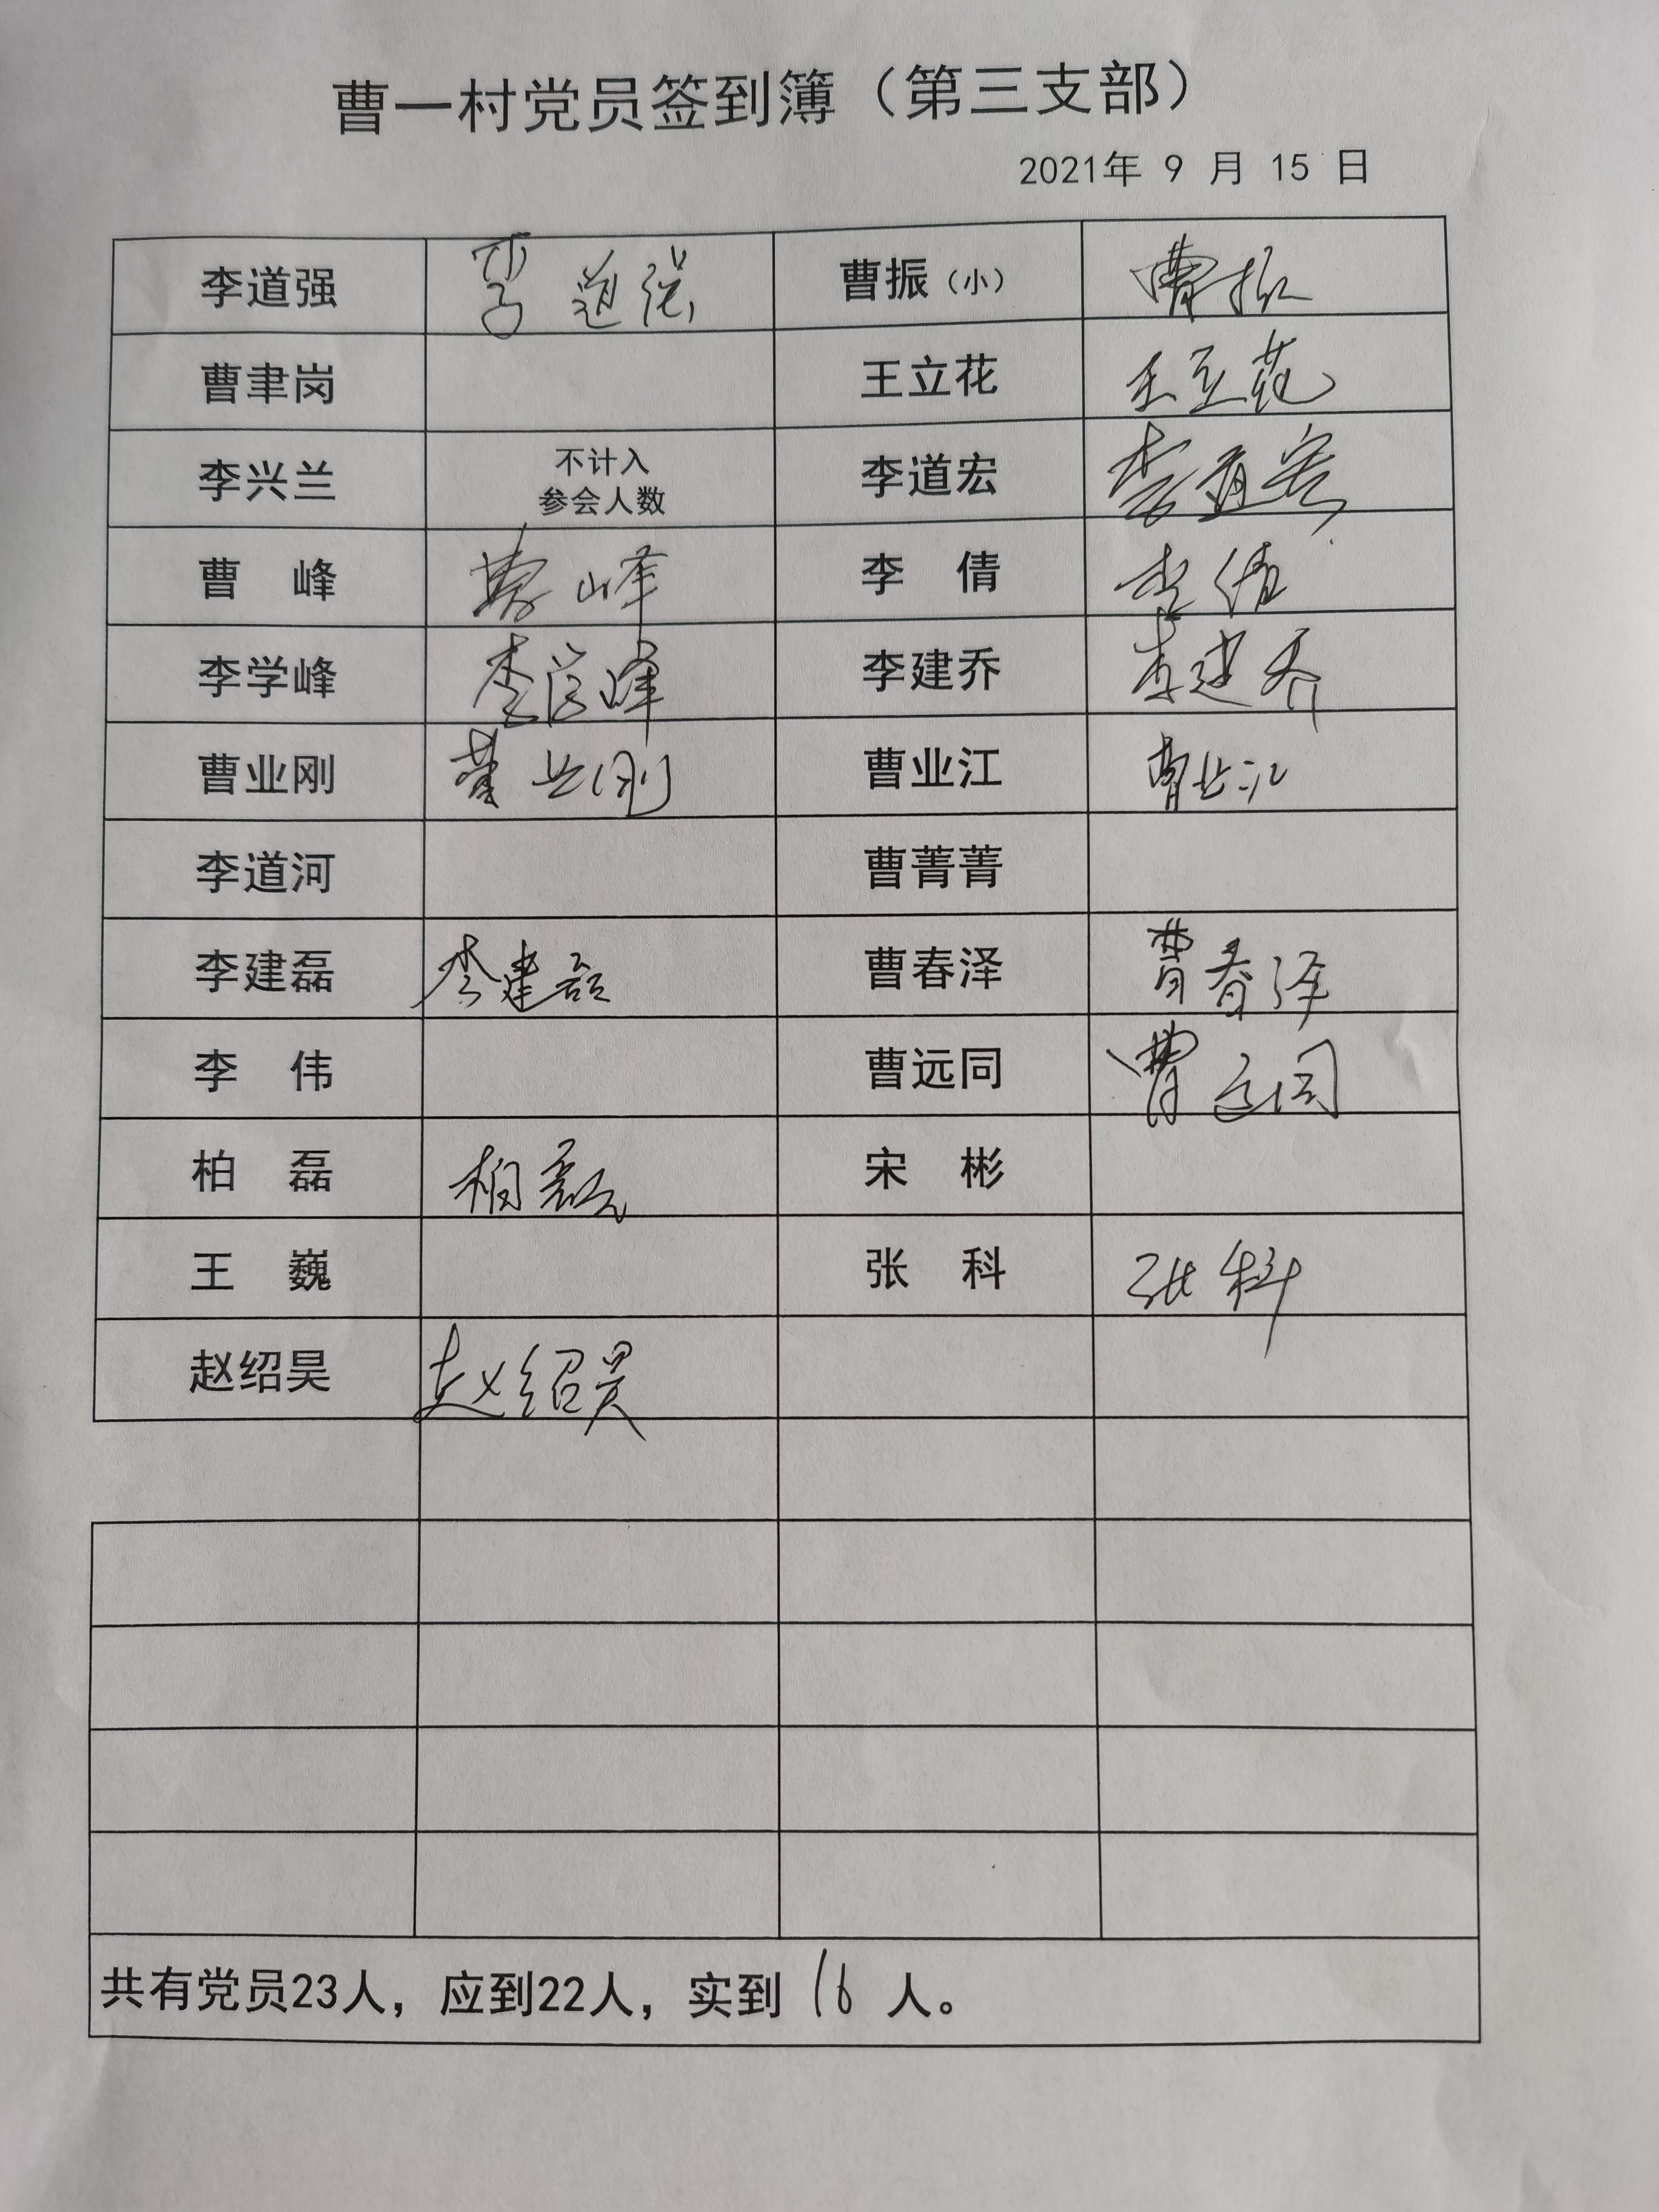 曹一村党员签到簿（第三支部）
2021年 9 月 15 日
李道强 李道强 曹振（小） 曹振
曹聿岗 王立花 王立花
李兴兰 不计入 李道宏 李道宏
参会人数
曹 峰 曹峰 李 倩 李倩
李学峰 李学峰 李建乔 李建乔
曹业刚 曹业刚 曹业江 曹业江
李道河 曹菁菁
李建磊 李建磊 曹春泽 曹春泽
李 伟 曹远同 曹远同
柏 磊 柏磊 宋 彬
王 巍 张 科 张科
赵绍昊 赵绍昊
共有党员23人，应到22人，实到 16 人。